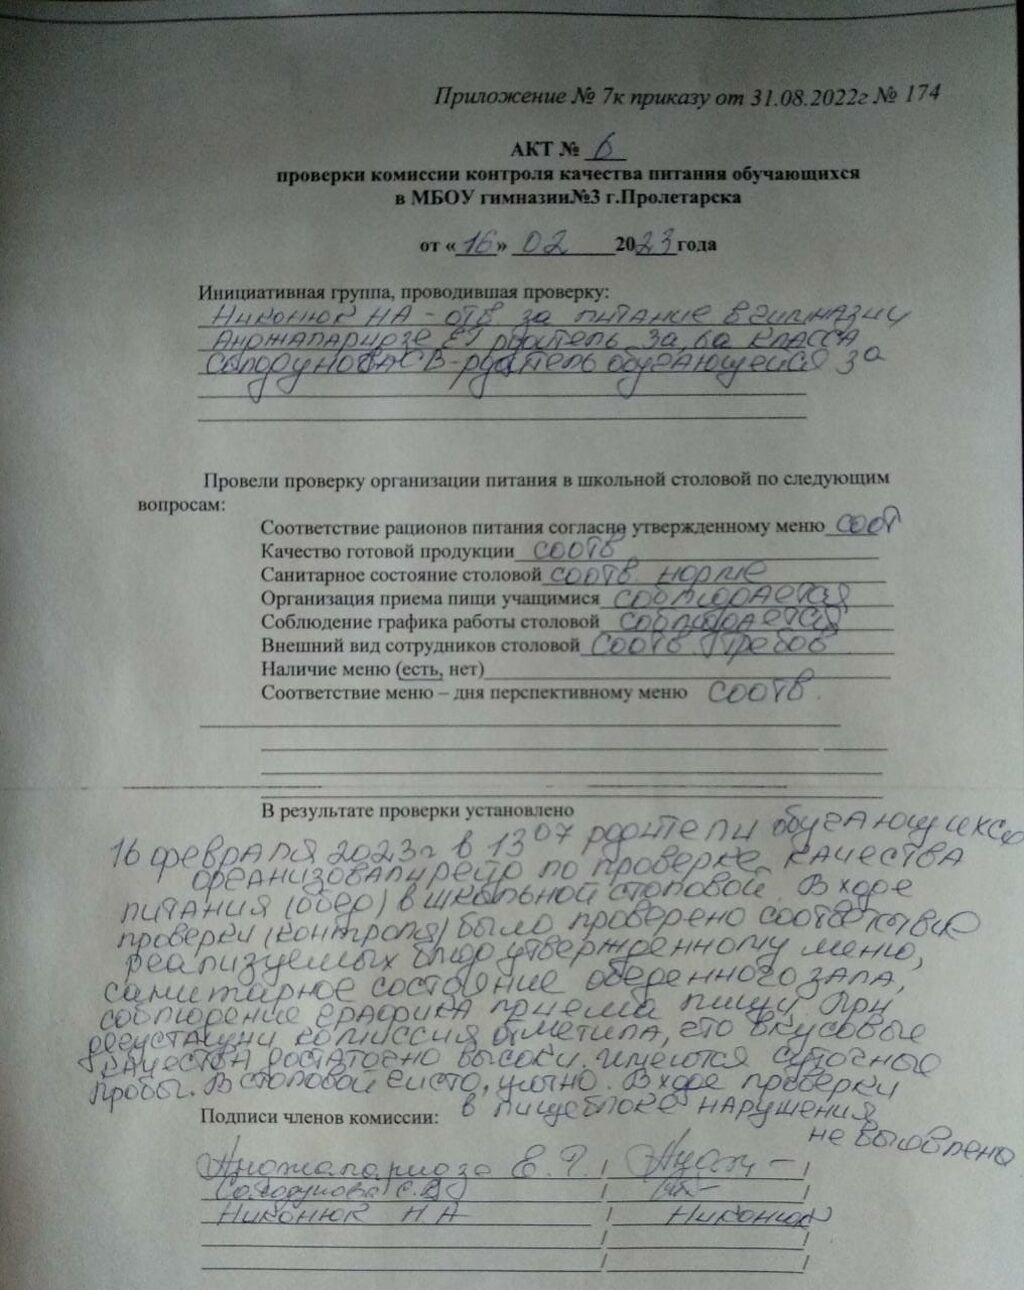 Приложение № 7к приказу от 31.08.2022г № 174
АКТ № 6
проверки комиссии контроля качества питания обучающихся
в МБОУ гимназии№3 г.Пролетарска
от «16» 02 2023 года
Инициативная группа, проводившая проверку:
Никонюк НА - отв за питание в гимназии
родитель 3а, 6а класса
СВ - родитель обучающейся 3а
Провели проверку организации питания в школьной столовой по следующим
вопросам:
Соответствие рационов питания согласно утвержденному меню соот
Качество готовой продукции соотв
Санитарное состояние столовой соотв норме
Организация приема пищи учащимися соблюдается
Соблюдение графика работы столовой соблюдается
Внешний вид сотрудников столовой соотв требов
Наличие меню (есть, нет)
Соответствие меню – дня перспективному меню соотв.
В результате проверки установлено
16 февраля 2023г в 13 07 родители обучающихся
организовали рейд по проверке качества
питания (обед) в школьной столовой. В ходе
проверки (контроля) было проверено соответствие
реализуемых блюд утвержденному меню,
санитарное состояние обеденного зала,
соблюдение графика приема пищи. При
дегустации комиссия отметила, что вкусовые
качества достаточно высоки. имеются суточные
пробы. В столовой чисто, уютно. В ходе проверки
в пищеблоке нарушения
не выявлено
Подписи членов комиссии:
Е. /
/
Никонюк НА / Никонюк
/
/